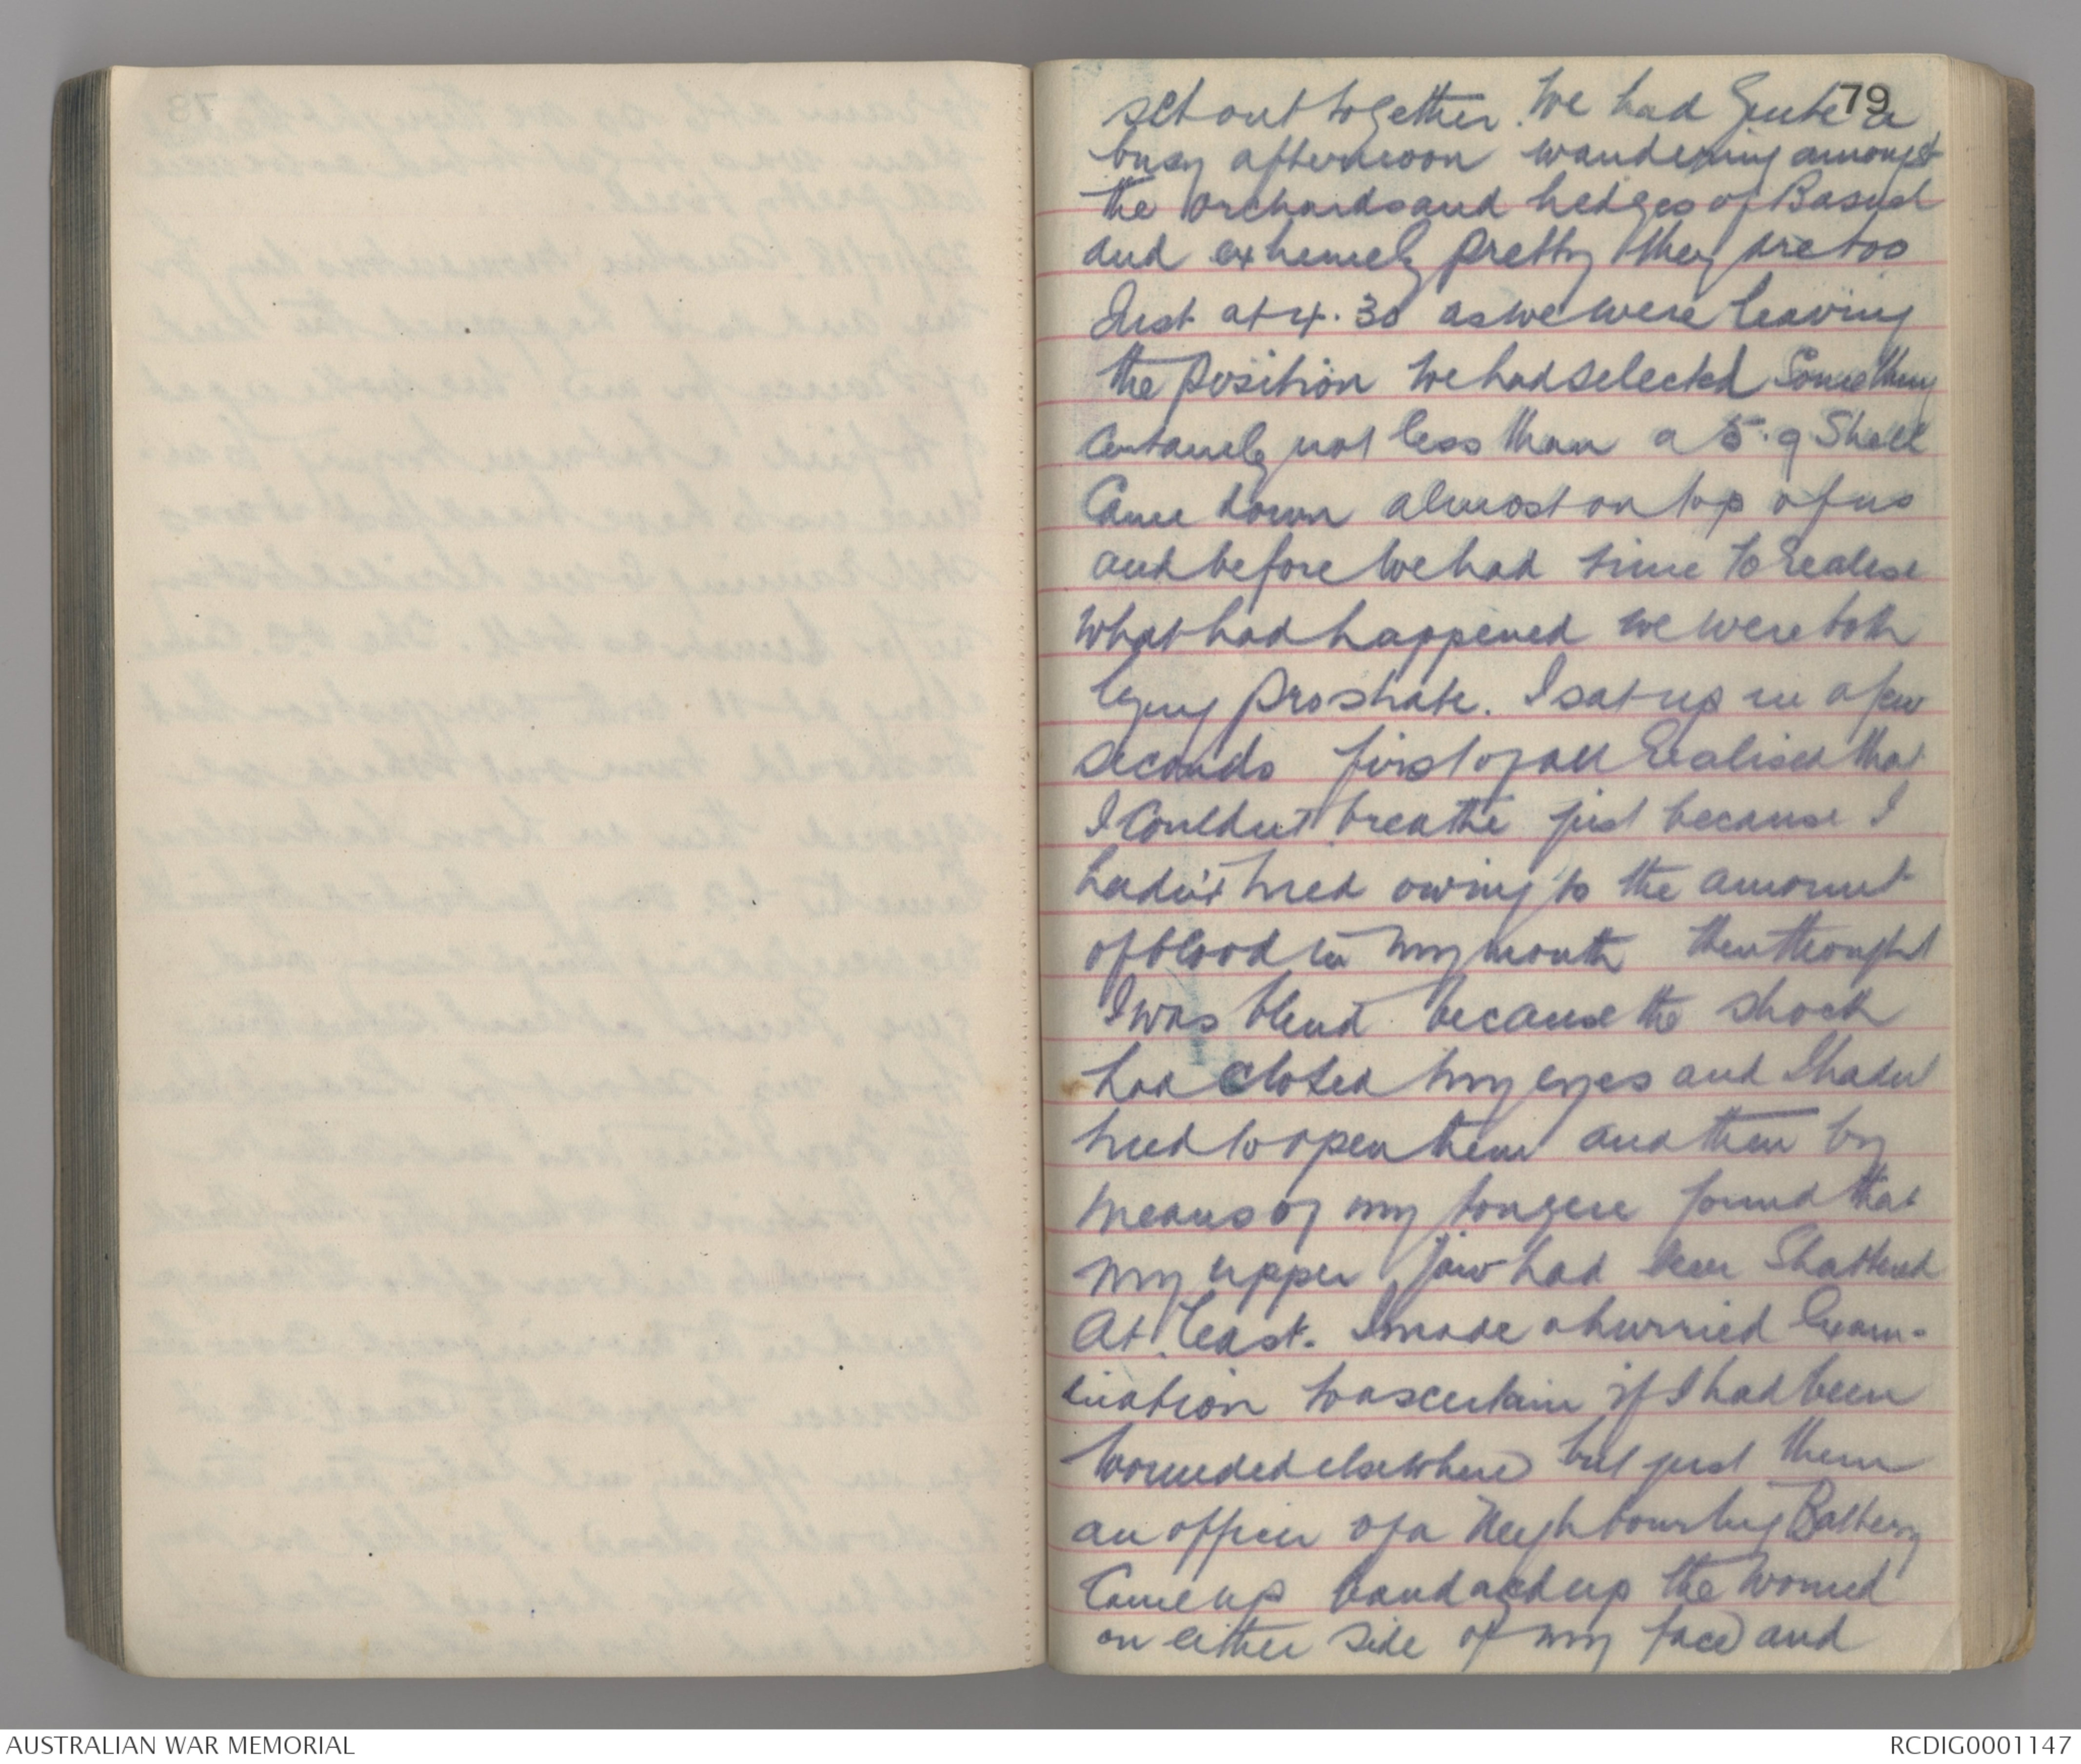 79
set out together. We had quite a
busy afternoon wandering amongst
the orchards and hedges of Basuel
and extremely pretty they are too
Just at 4.30 as we were leaving
the position we had selected Something
Certainly not less than a 5.9 Shell
Came down almost on top of us
and before we had time to realise
what had happened we were both
lying prostrate. I sat up in a few
seconds first of all realised that
I couldn't breathe just because I
hadn't tried owing to the amount
of blood in my mouth then thought
I was blind because the shock
had closed my eyes and I hadn't
tried to open them and then by
means of my tongue found that
my upper jaw had been Shattered
At least. I made a hurried Exam-
ination to ascertain if I had been
wounded elsewhere but just then
an officer of a Neighbouring Battery
Came up bandaged up the wound
on either side of my face and
AUSTRALIAN WAR MEMORIAL
RCDIG0001147